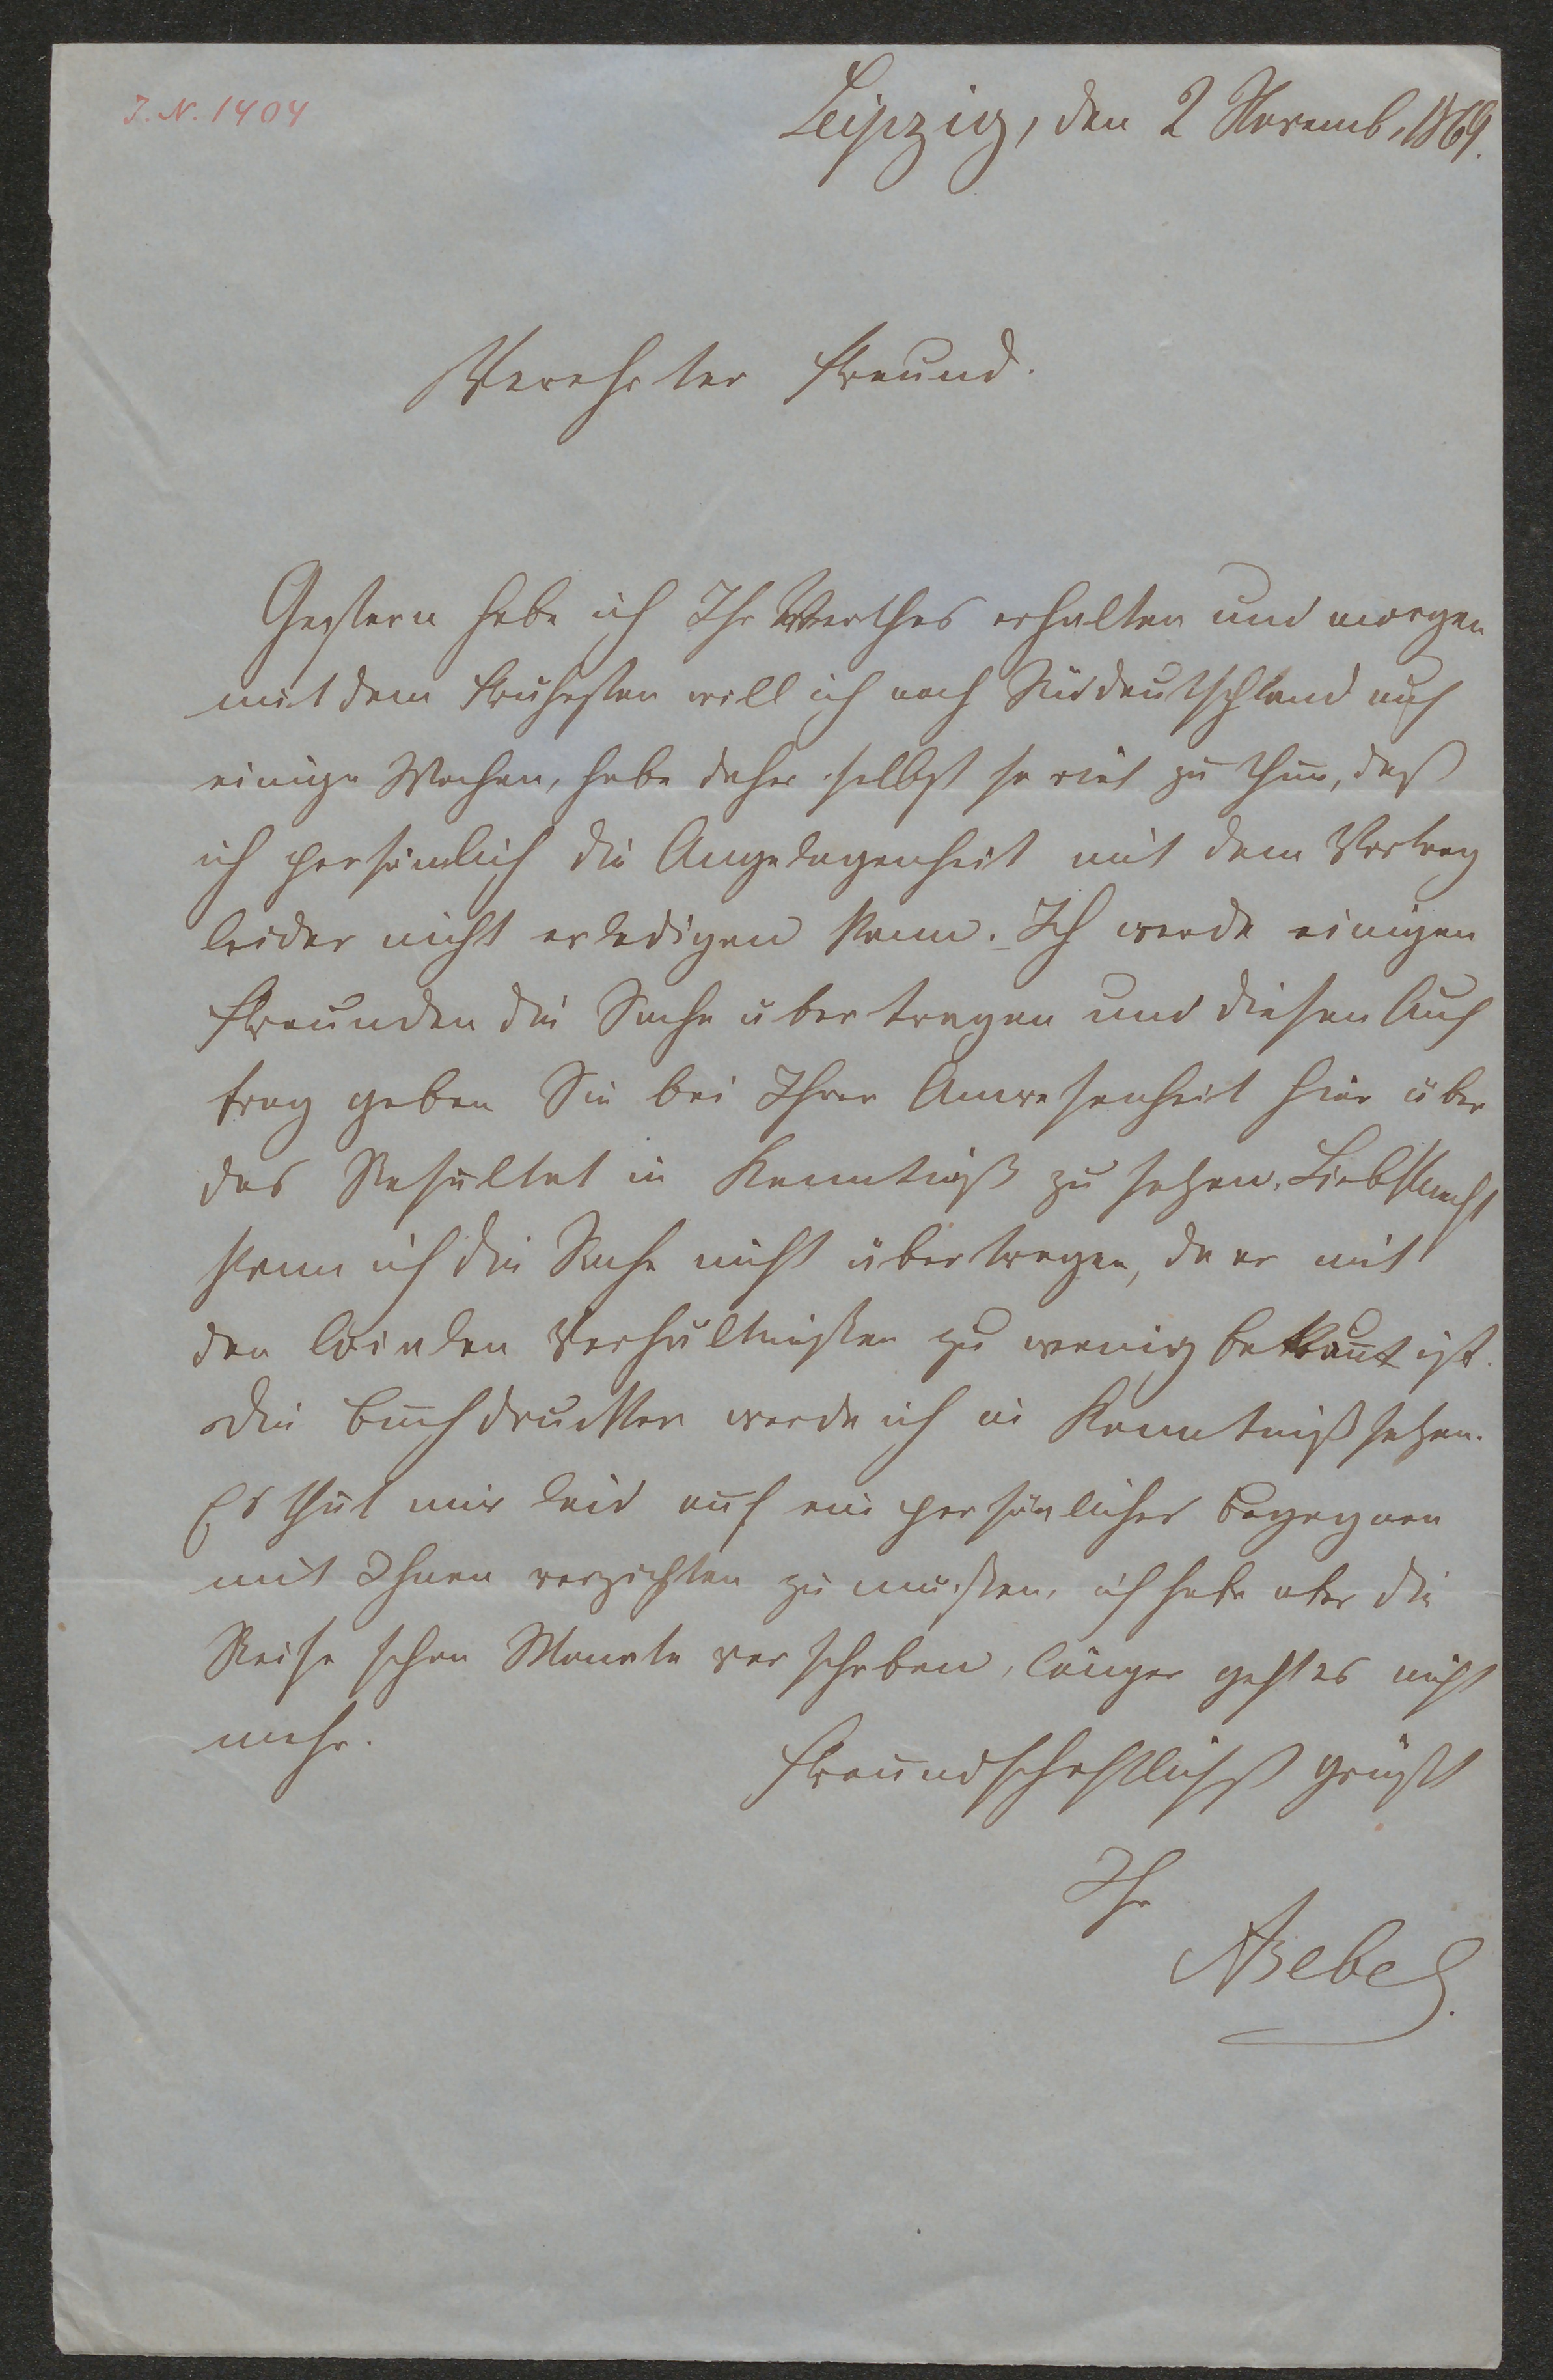 J. N. 1404
Leipzig, den 2 Novemb. 1869.
Verehrter Freund.
Gestern habe ich Ihr Werthes erhalten und morgen
mit dem Frühesten will ich nach Süddeutschland auf
einige Wochen, habe daher selbst so viel zu thun, daß
ich persönlich die Angelegenheit mit dem Vortrag
leider nicht erledigen kann. Ich werde einigen
Freunden die Sache übertragen und diesen Auf
trag geben Sie bei Ihrer Anwesenheit hier über
das Resultat in Kenntniß zu setzen. Liebknecht
kann ich die Sache nicht übertragen, da er mit
den localen Verhältnißen zu wenig bekannt ist.
Die Buchdrucker werde ich in Kenntniß setzen.
Es thut mir leid auf ein persönliches Begegnen
mit Ihnen verzichten zu müßen, ich habe aber die
Reise schon Monate verschoben, länger geht es nicht
mehr.
Freundschaftlichst grüßt
Ihr
ABebel.